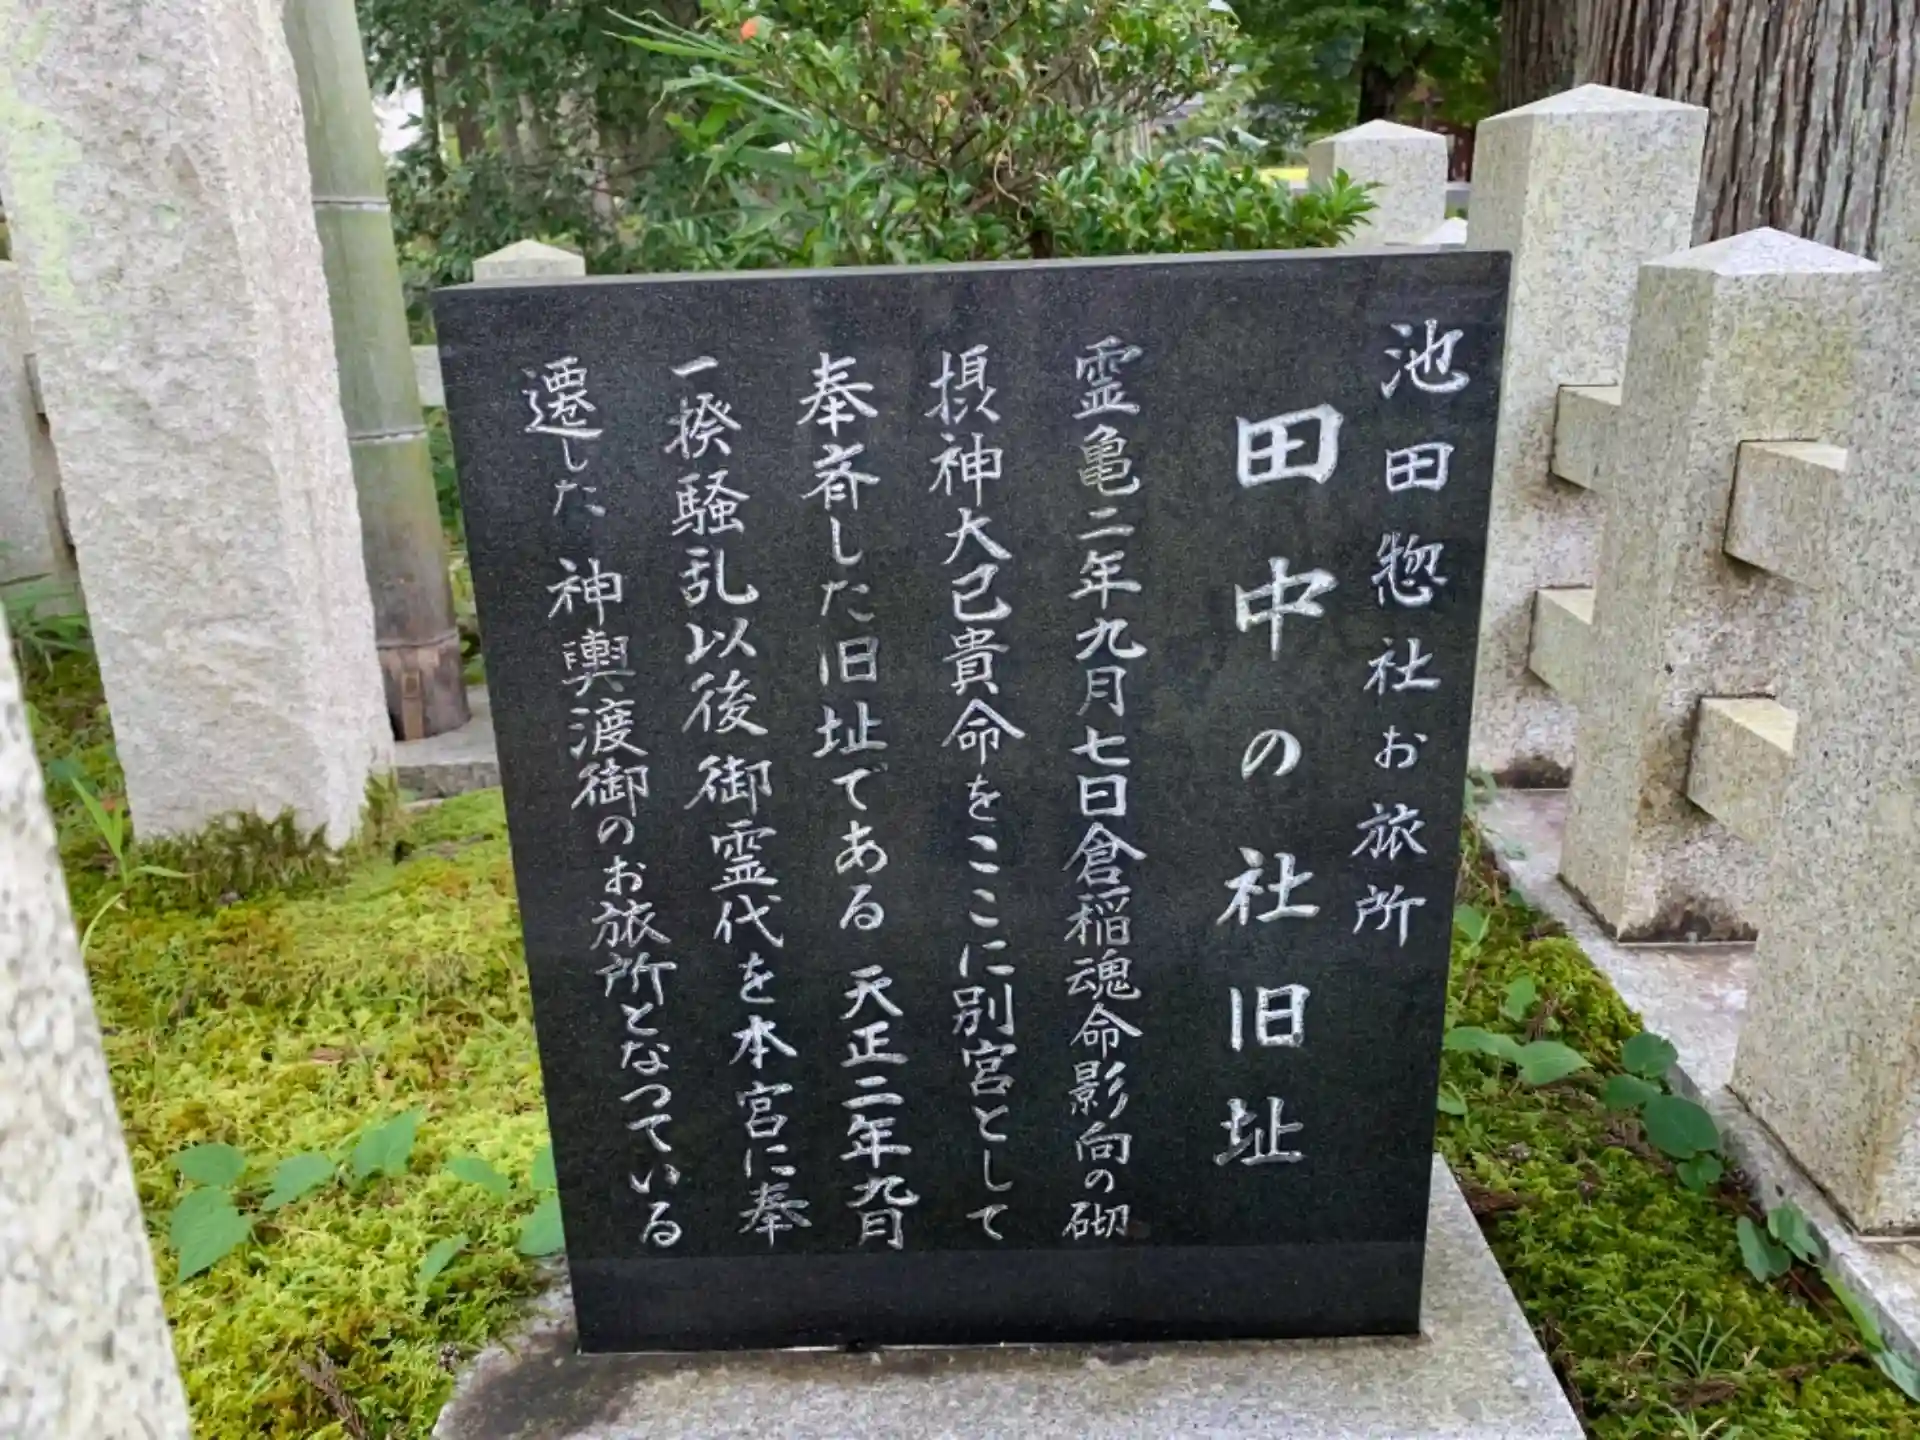 池田惣社お旅所
田中の社旧址
霊亀二年九月七日倉稲魂命影向の砌
摂神大己貴命をここに別宮として
奉斉した旧址である 天正二年九月
一揆騒乱以後御霊代を本宮に奉
遷した 神輿渡御のお旅所となつている